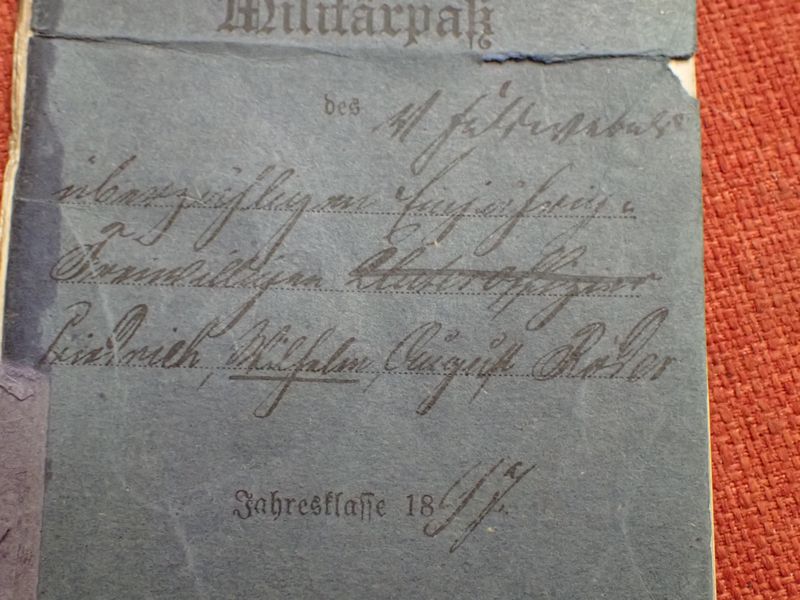 Militärpaß
des Feldwebels
überzähligen Einjährig-
Freiwilligen Unteroffizier
Friedrich, Wilhelm, August Röder
Jahresklasse 1897.